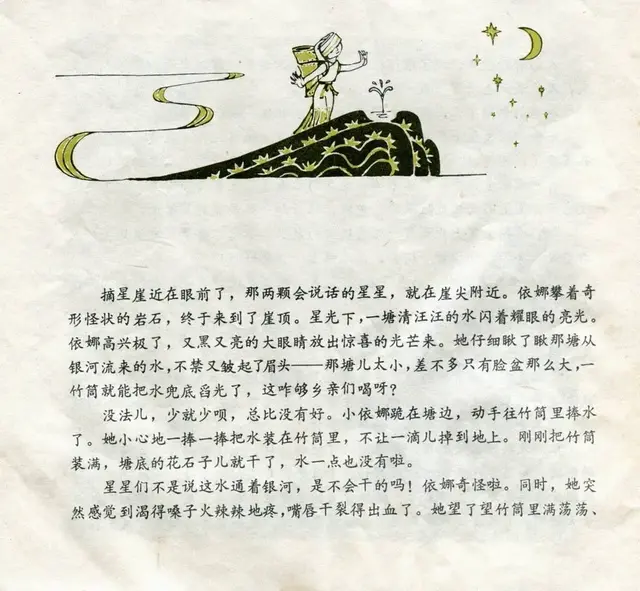 摘星崖近在眼前了，那两颗会说话的星星，就在崖尖附近。依娜攀着奇
形怪状的岩石，终于来到了崖顶。星光下，一塘清汪汪的水闪着耀眼的亮光。
依娜高兴极了，又黑又亮的大眼睛放出惊喜的光芒来。她仔细瞅了瞅那塘从
银河流来的水，不禁又皱起了眉头——那塘儿太小，差不多只有脸盆那么大，一
竹筒就能把水兜底舀光了，这咋够乡亲们喝呀？
没法儿，少就少呗，总比没有好。小依娜跪在塘边，动手往竹筒里捧水
了。她小心地一捧一捧把水装在竹筒里，不让一滴儿掉到地上。刚刚把竹筒
装满，塘底的花石子儿就干了，水一点也没有啦。
星星们不是说这水通着银河，是不会干的吗！依娜奇怪啦。同时，她突
然感觉到渴得嗓子火辣辣地疼，嘴唇干裂得出血了。她望了望竹筒里满荡荡、